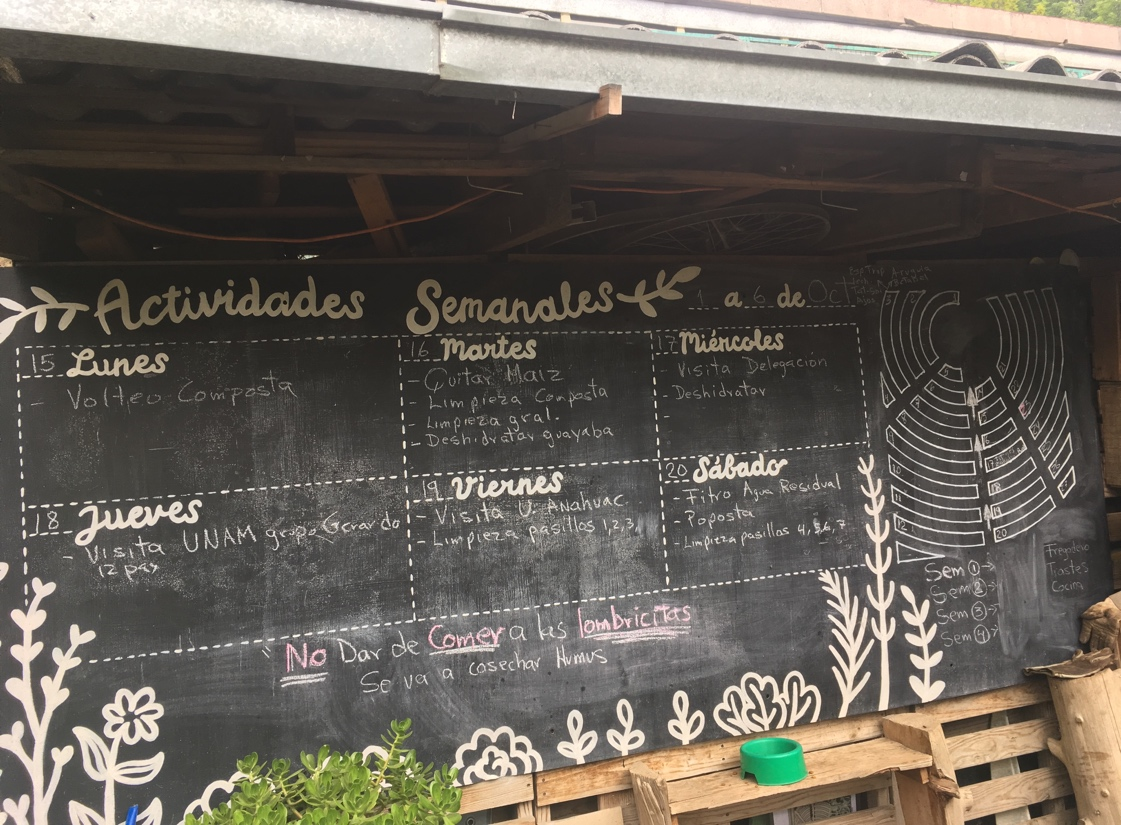 Actividades Semanales 1 a 6 de Oct
15 Lunes
- Volteo Composta
16 Martes
- Quitar Maiz
- Limpieza Composta
- Limpieza gral.
- Deshidratar guayaba
17 Miércoles
- Visita Delegación
- Deshidratar
-
18 Jueves
- Visita UNAM grupo Gerardo
12 pax
19 Viernes
- Visita U. Anahuac
- Limpieza pasillos 1,2,3,
20 Sábado
- Fitro Agua Residual
- Poposta
- Limpieza pasillos 4,5,6,7
No Dar de Comer a las lombricitas
Se va a cosechar Humus
Sem 1
Sem 2
Sem 3
Sem 4
Fregadero
Trastes
Cocina